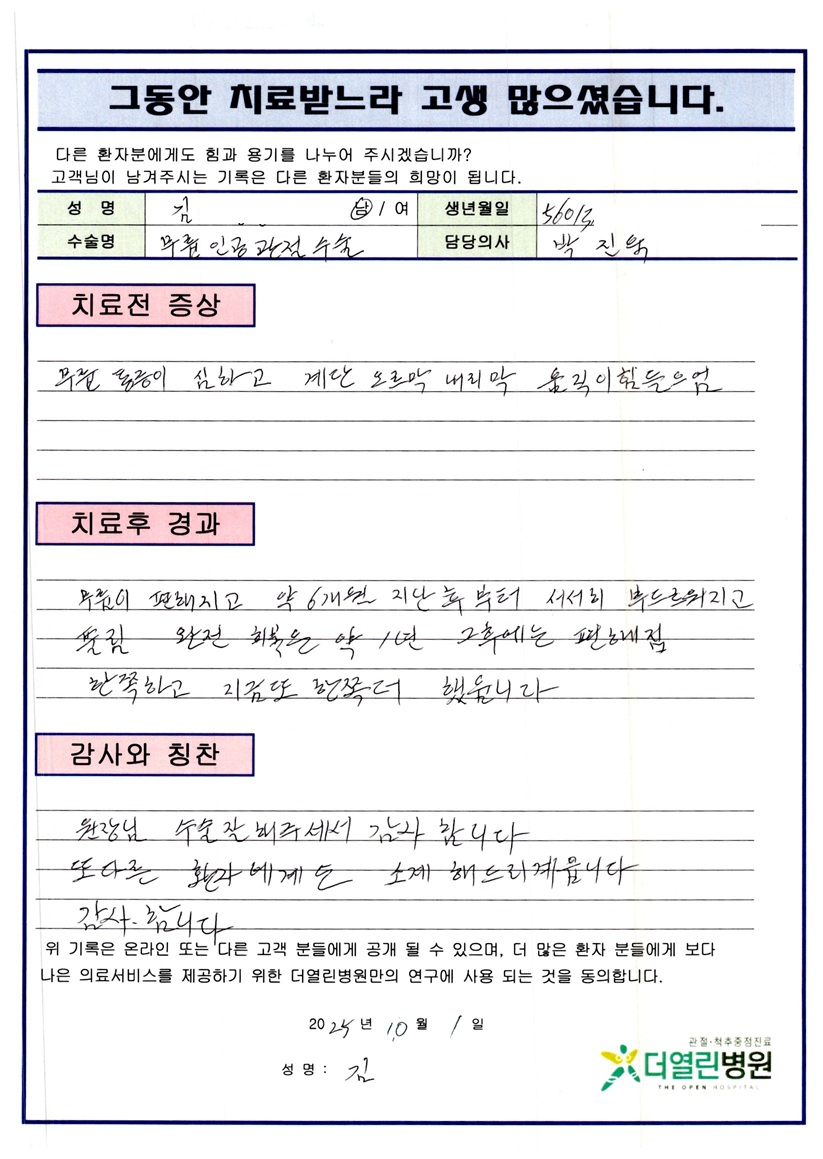 그동안 치료받느라 고생 많으셨습니다.
다른 환자분에게도 힘과 용기를 나누어 주시겠습니까?
고객님이 남겨주시는 기록은 다른 환자분들의 희망이 됩니다.
성 명 김 남 / 여 생년월일 5601
수술명 무릎 인공관절 수술 담당의사 박 진
치료전 증상
무릎 통증이 심하고 계단 오르막 내리막 움직이힘들으엄
치료후 경과
무릎이 편해지고 약 6개월 지난 후 부터 서서히 부드러워지고
완전 회복은 약 1년 그후에는 편해짐
한쪽하고 지금또 한쪽더 했읍니다
감사와 칭찬
원장님 수술 잘해주세서 감사 합니다
또다른 환자에게도 소개 해드리게읍니다
감사. 합니다
위 기록은 온라인 또는 다른 고객 분들에게 공개 될 수 있으며, 더 많은 환자 분들에게 보다
나은 의료서비스를 제공하기 위한 더열린병원만의 연구에 사용 되는 것을 동의합니다.
2025 년 10 월 1 일
성 명 : 김
관절·척추중점진료
더열린병원
THE OPEN HOSPITAL